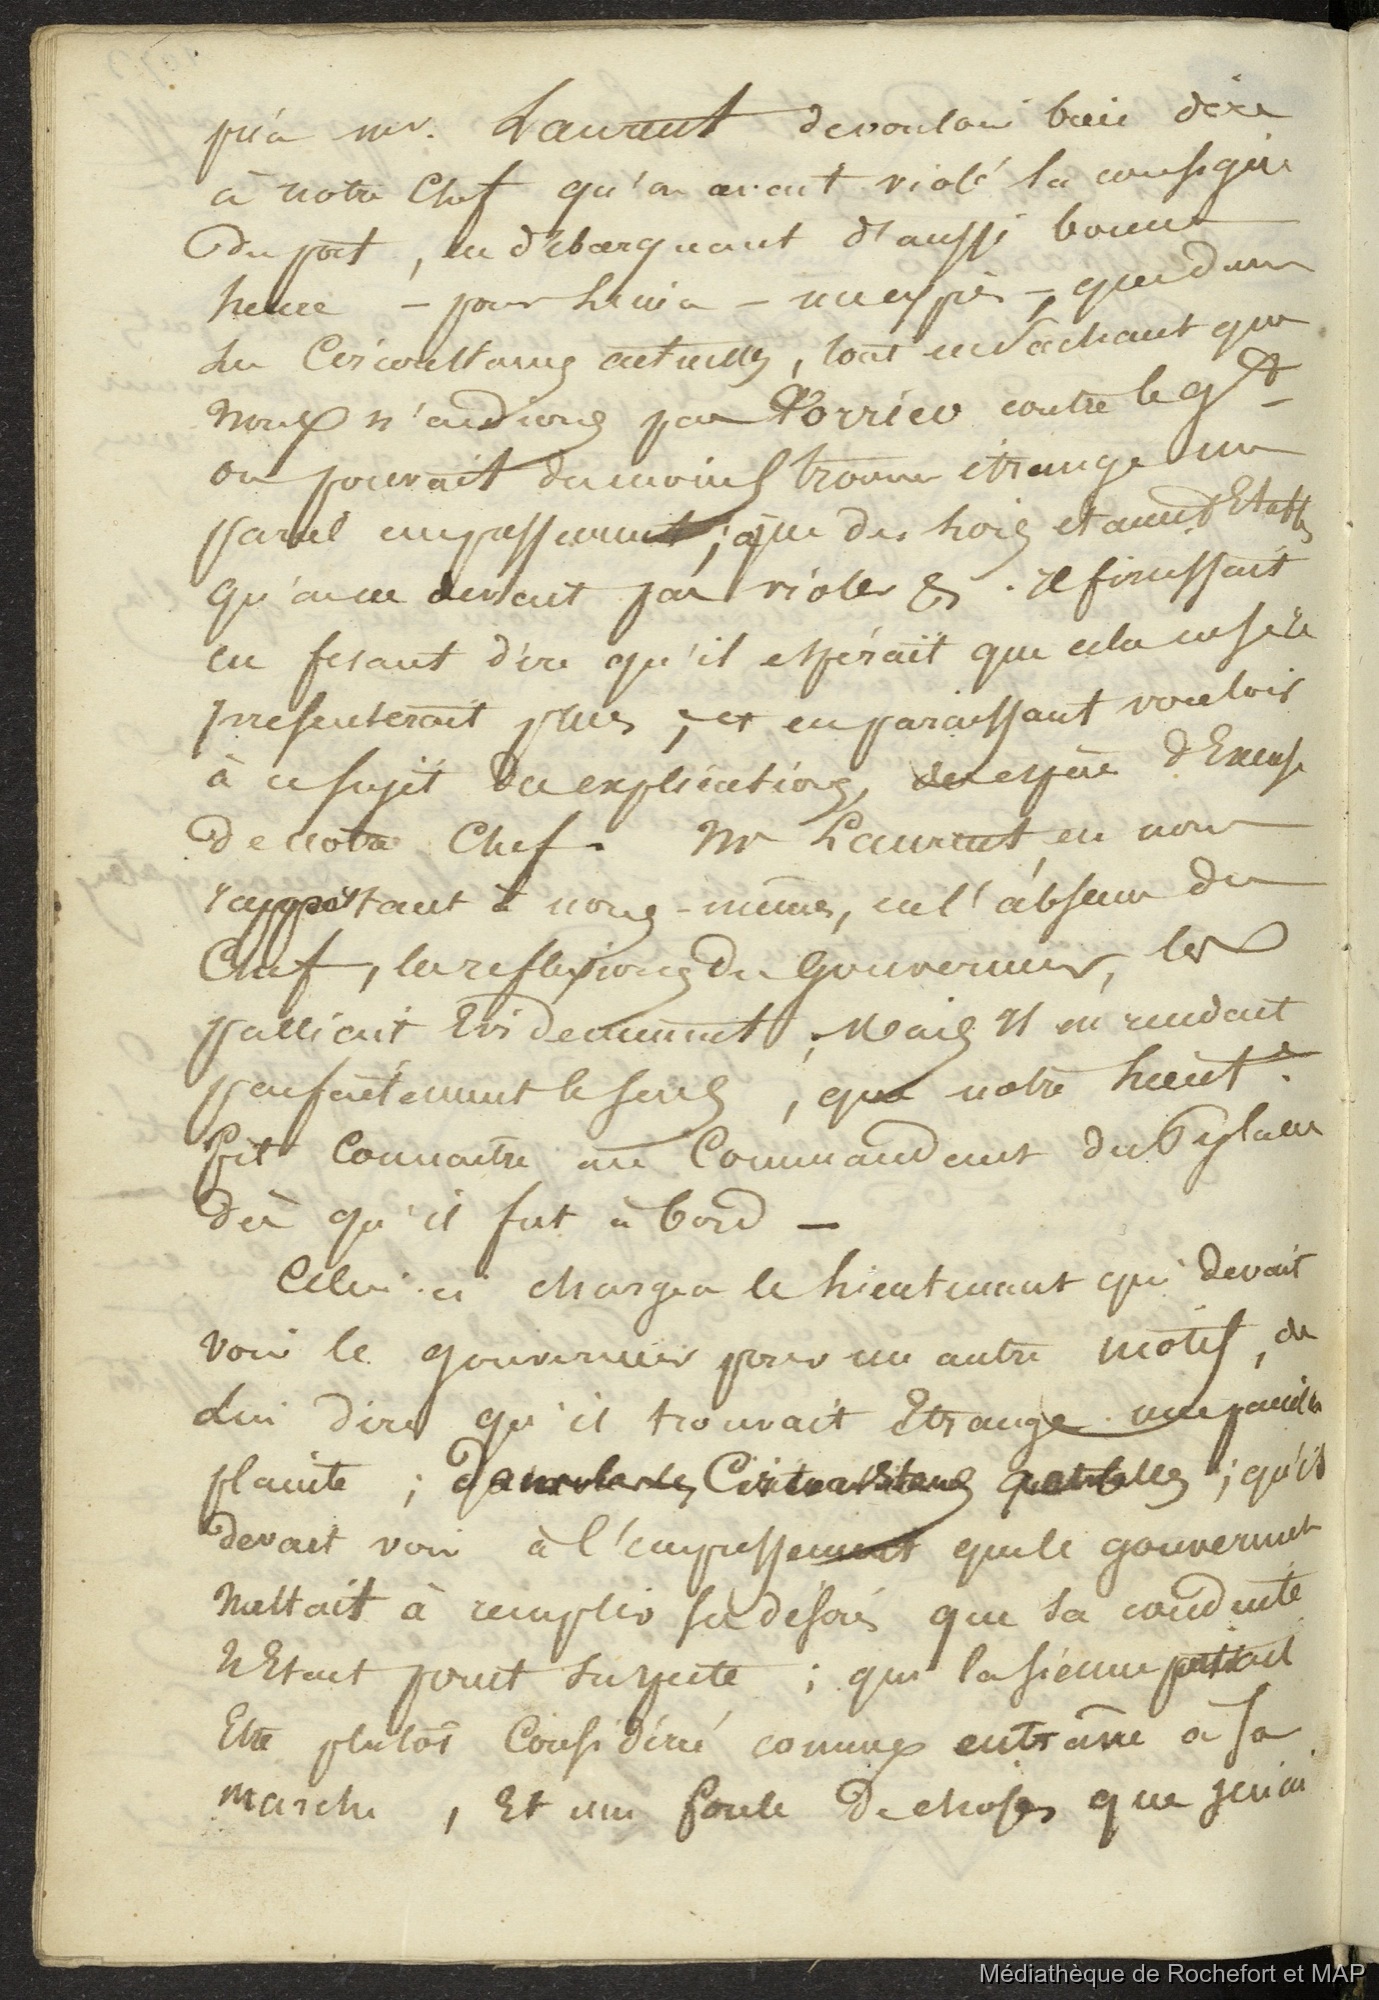 pria mr. Laurent de vouloir bien dire
à notre Chef qu'on avait violé la consigne
du port, en débarquant d'aussi bonne
heure – pour Lima – un exprès –, que dans
les Circonstances actuelles, tout en sachant que
nous n'eussions pas contre le gt
on pouvait du moins trouver étrange un
pareil empressement ; que des lois étaient Etablies
qu'on ne devait pas violer &. Il finissait
en fesant dire qu'il espérait que cela ne se re
presenterait plus ; et en paraissant vouloir
à ce sujet des explications, espèce d'Excuse
de notre Chef. Mr Laurent, en nous
rapportant à nous-mêmes, en l'absence du
Chef, les reflexions du Gouverneur, les
palliait Evidemment ; Mais Il en rendait
parfaitement le sens, que notre Lieut.t
fit Connaitre au Commandant du
dès qu'il fut à bord –
Celui-ci chargea le Lieutenant qui devait
voir le gouverneur pour un autre motif, de
Lui dire qu'il trouvait Etrange une pareille
plainte ; dans les Circonstances actuelles ; qu'il
devait voir à l'empressement que le gouvernement
Mettait à remplir ses désirs que sa conduite
N'Etait point suspecte ; que la sienne
Etre plutôt Considérée comme entravée à sa
marche, Et une foule de choses que je n'ai
Médiathèque de Rochefort et MAP